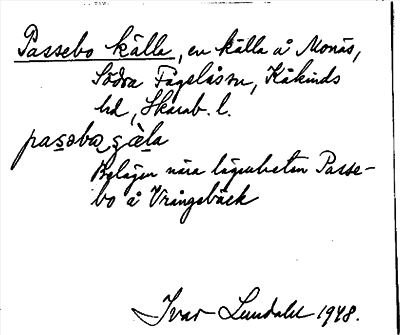 Passebo källa, en källa å Monäs,
Södra Fågelåsen, Kåkinds
hd, Skarab. l.
pasəboą çæ̀la
Belägen nära lägenheten Passe-
bo å Vrångebäck
Ivar Lundahl 1948.